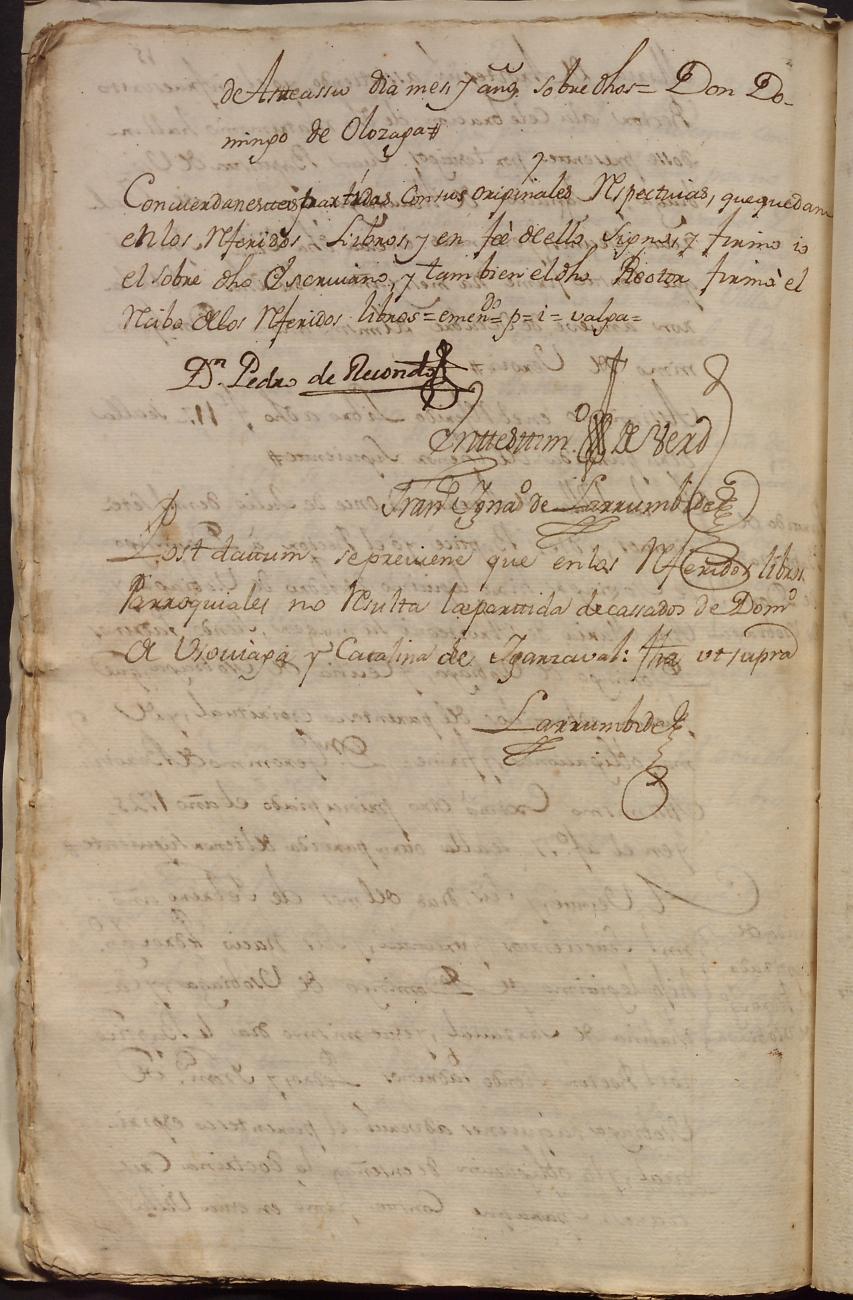 de Asteassu dia mes, y año, sobre dhos= Don Do-
mingo de Olozaga#
Concuerdan estas partidas con sus originales respectivas, que quedan
en los referidos Libros, y en feè de ello Signè, y firmo io
el sobre dho Escrivano, y tambien el dho Rector firmò el
recibo de los referidos libros=emendº=p=i=valga=
Dn. Pedro de Recondo
En testimº. de Verd
Franº Ignaº de Larrumbide
Post dattum se previene que en los referidos libros
Parroquiales no resulta la parttida de cassados de Domº
de Usoviaga y Catalina de Yganzaval: fha ut supra
Larrumbide